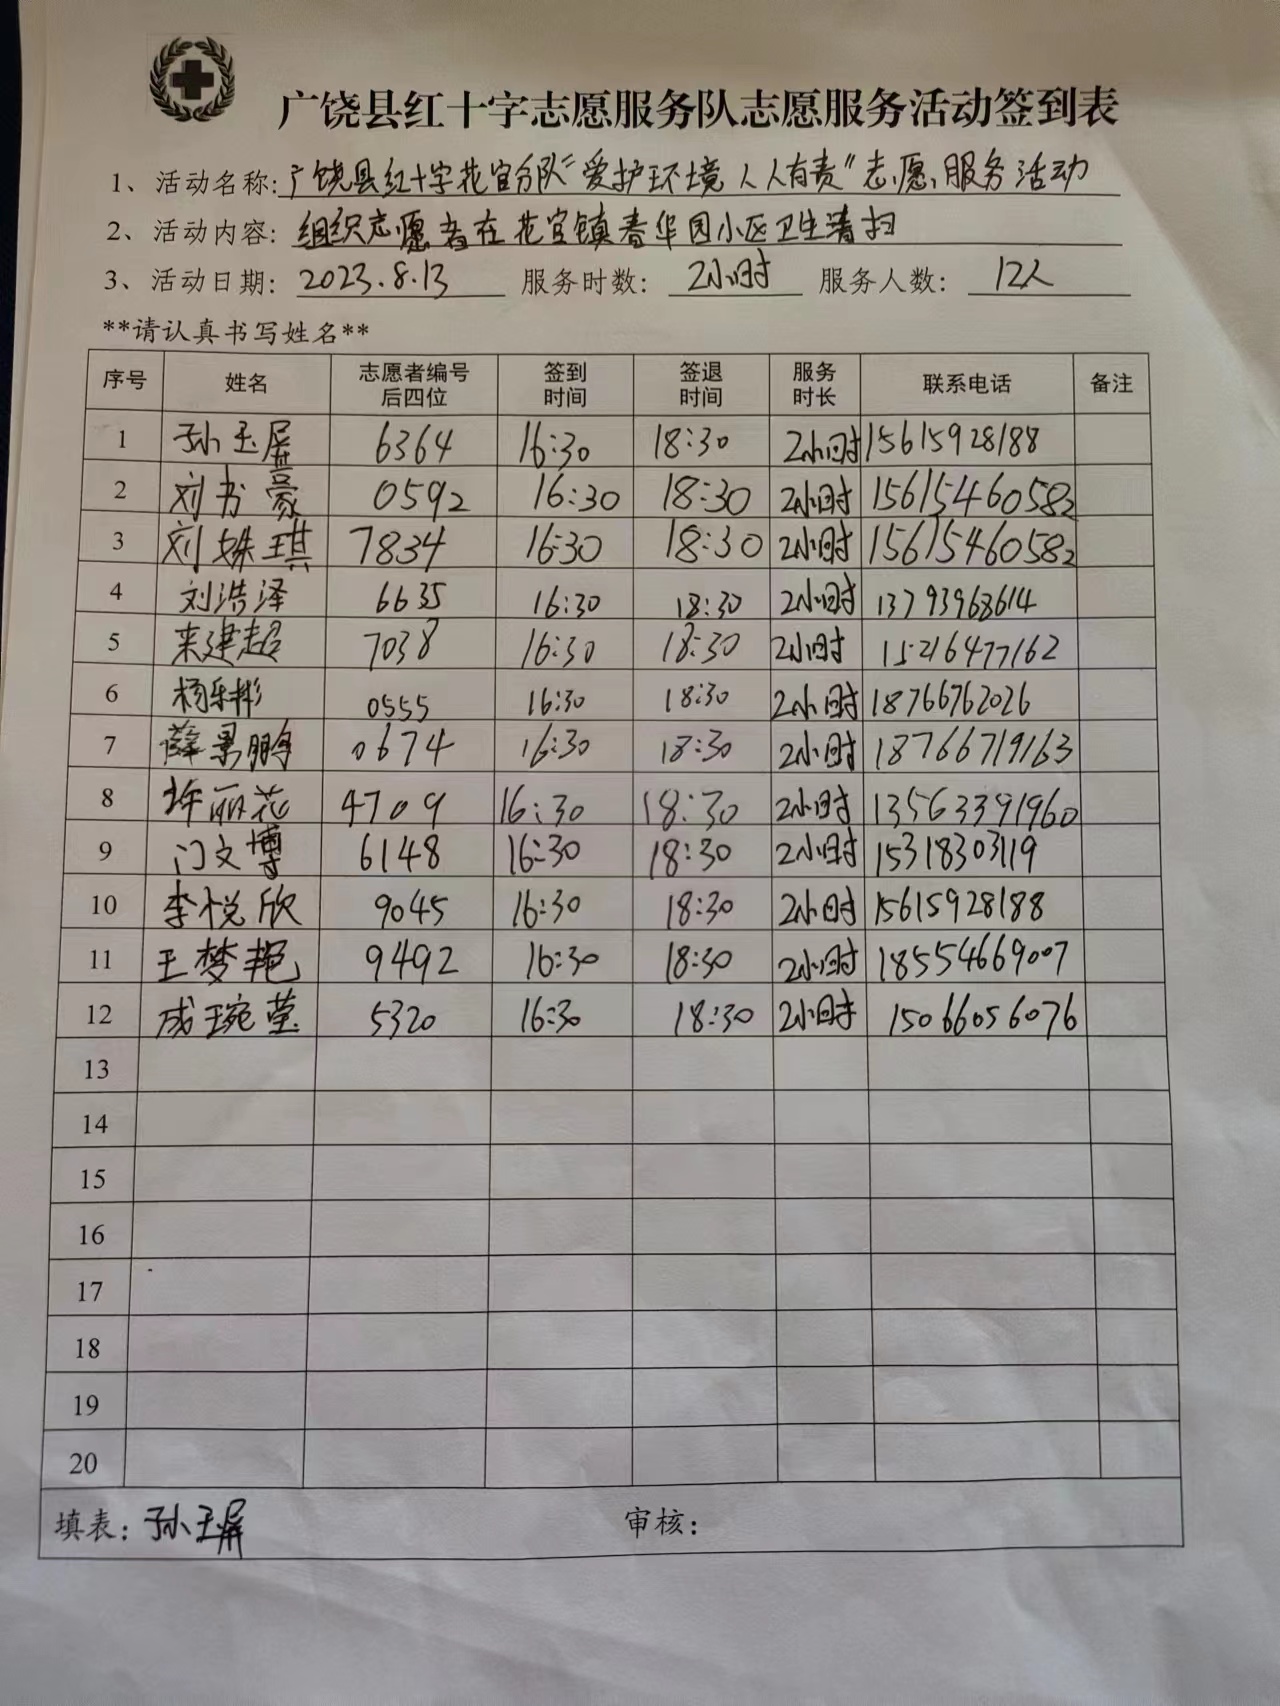 广饶县红十字志愿服务队志愿服务活动签到表
1、活动名称:广饶县红十字花官分队“爱护环境 人人有责”志愿服务活动
2、活动内容:组织志愿者在花官镇春华园小区卫生清扫
3、活动日期:2023.8.13 服务时数:2小时 服务人数:12人
**请认真书写姓名**
序号 姓名 志愿者编号后四位 签到时间 签退时间 服务时长 联系电话 备注
1 孙玉屏 6364 16:30 18:30 2小时 15615928188
2 刘书豪 0592 16:30 18:30 2小时 15615460582
3 刘姝琪 7834 16:30 18:30 2小时 15615460582
4 刘浩泽 6635 16:30 18:30 2小时 13793968614
5 来建超 7038 16:30 18:30 2小时 15216477162
6 杨乐彬 0555 16:30 18:30 2小时 18766762026
7 薛景鹏 0674 16:30 18:30 2小时 18766719163
8 许丽花 4709 16:30 18:30 2小时 13563391960
9 门文博 6148 16:30 18:30 2小时 15318303119
10 李悦欣 9045 16:30 18:30 2小时 15615928188
11 王梦艳 9492 16:30 18:30 2小时 18554669007
12 成琬莹 5320 16:30 18:30 2小时 15066056076
13
14
15
16
17
18
19
20
填表:孙玉屏 审核: